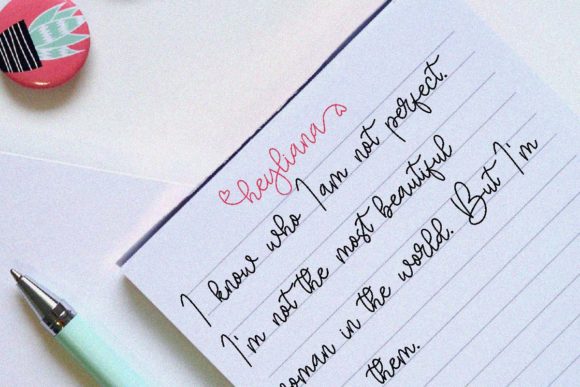 heyliana
I know who I am not perfect.
I'm not the most beautiful
woman in the world. But I'm
them.